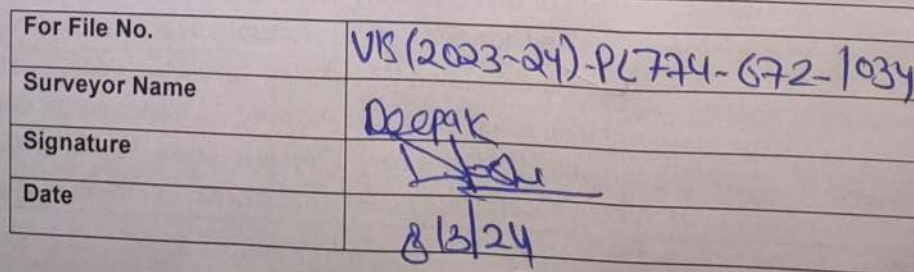 For File No. VIS(2023-24)-PL774-672-1034
Surveyor Name Deepak
Signature
Date 8/3/24